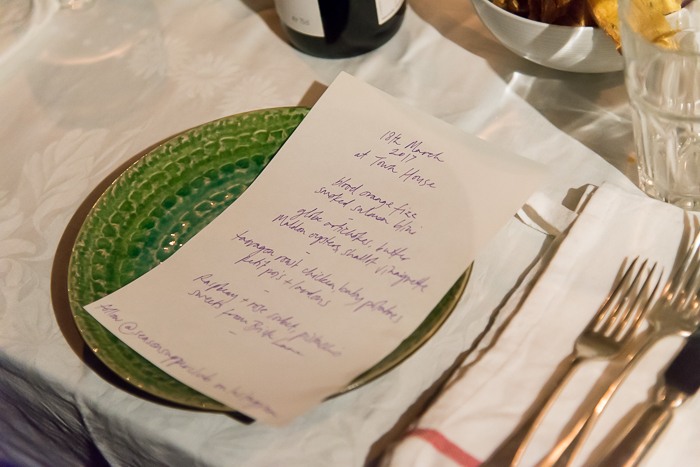 18th March
2017
at Town House
blood orange fizz
smoked salmon blini
-
globe artichokes, butter
Maldon oysters, shallot vinaigrette
-
tarragon roast chicken baby potatoes
petit pois + lardons
-
Raspberry + rose sorbet, pistachio
sweets from
-
follow @ on instagram